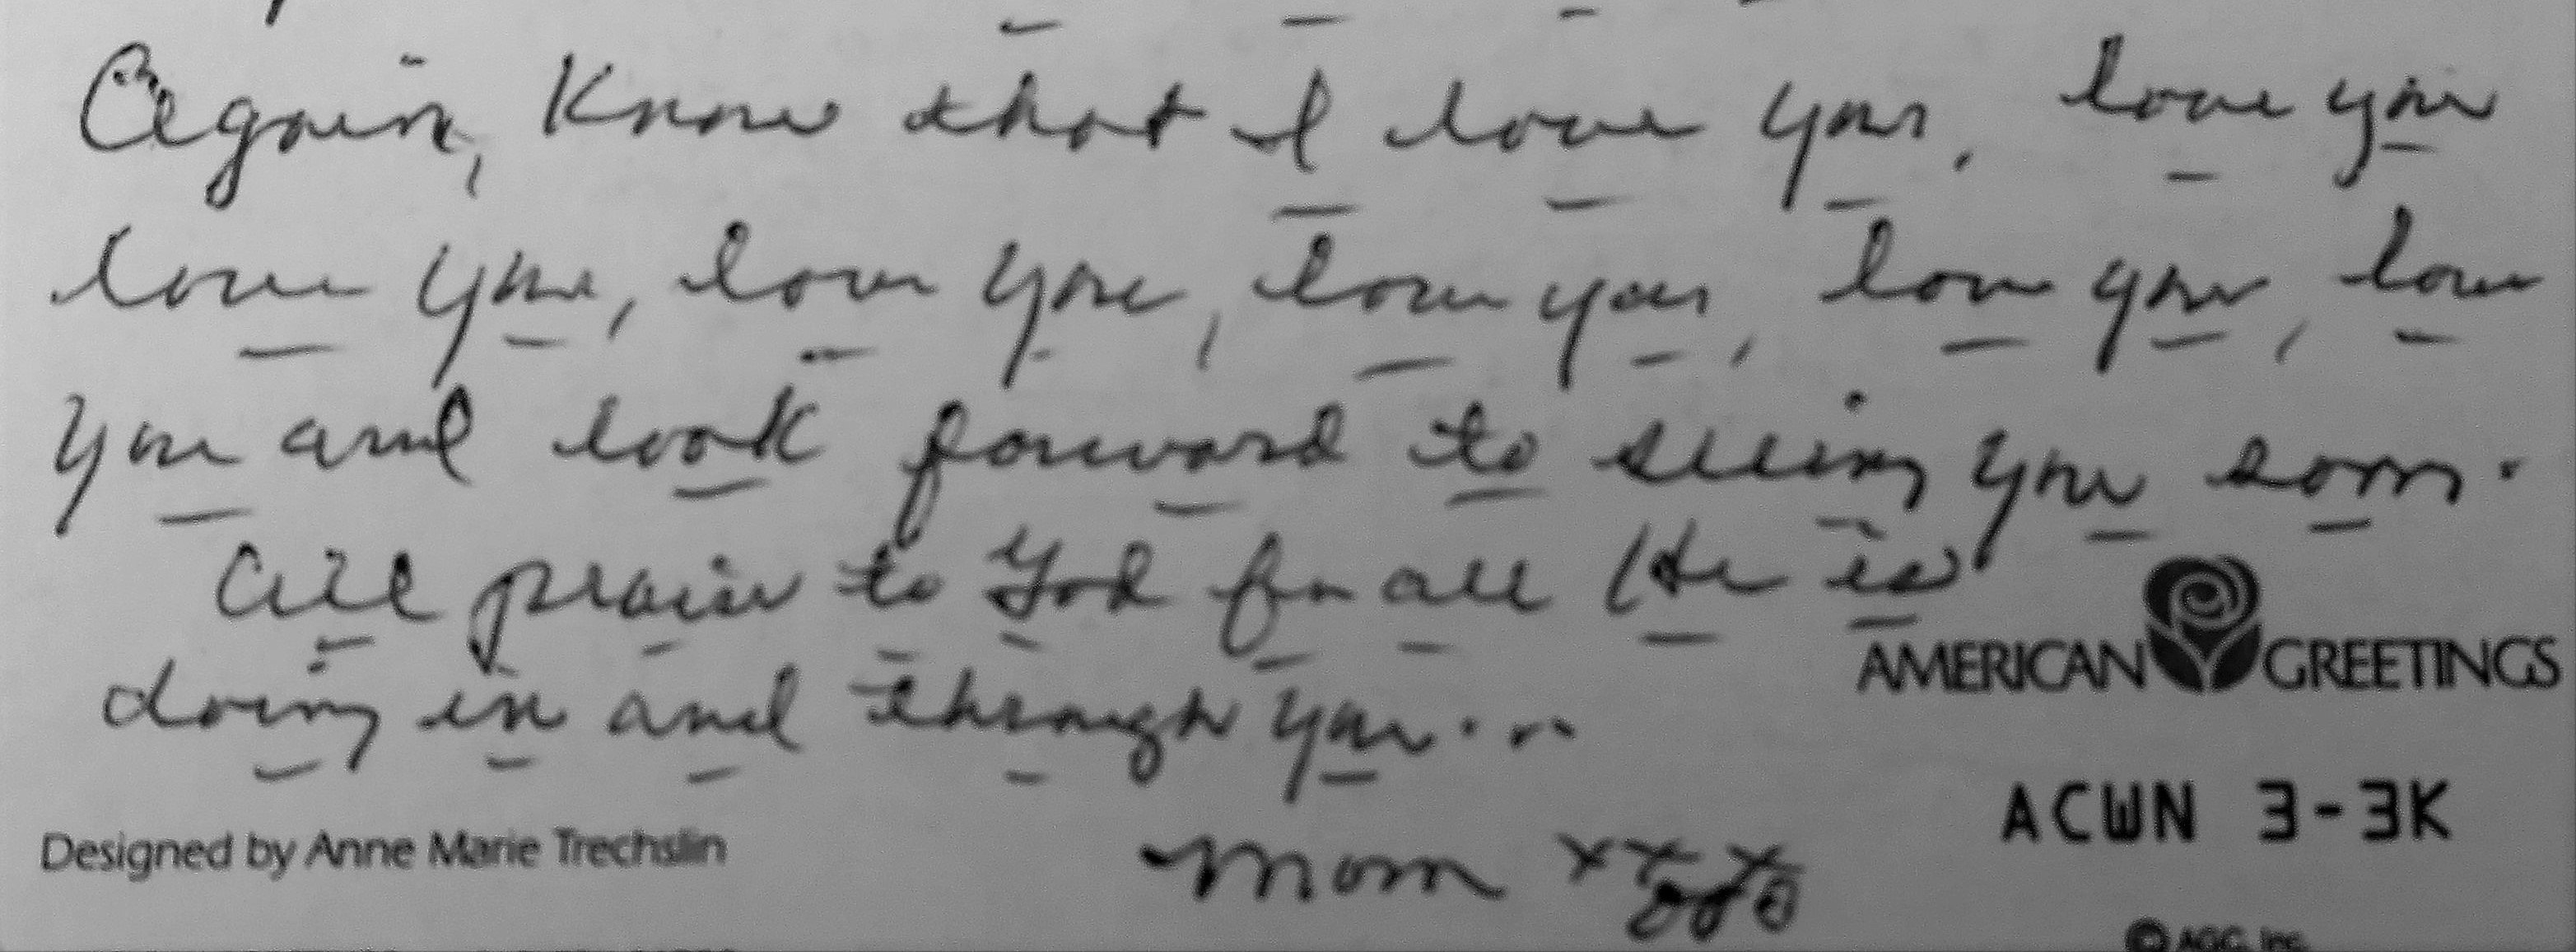 Again, Know that I love you, love you
love you, love you, love you, love you, love
you and look forward to seeing you soon.
All praise to God for all He is
AMERICAN GREETINGS
doing in and through you...
ACWN 3-3K
Designed by Anne Marie Trechslin
Mom xxx ooo
© AGC, Inc.